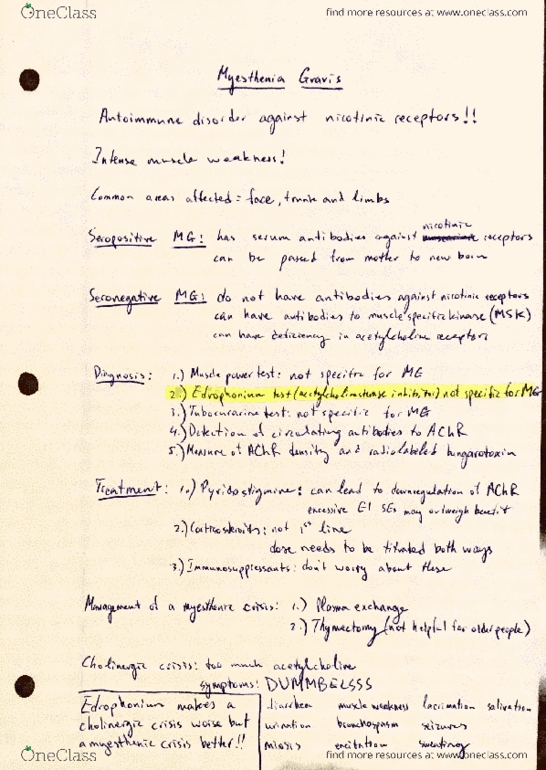 OneClass
find more resources at www.oneclass.com
Myesthenia Gravis
Autoimmune disorder against nicotinic receptors!!
Intense muscle weakness!
Common areas affected: face, trunk and limbs
Seropositive MG: has serum antibodies against nicotinic receptors
can be passed from mother to new born
Seronegative MG: do not have antibodies against nicotinic receptors
can have antibodies to muscle specific kinase (MSK)
can have deficiency in acetylcholine receptors
Diagnosis: 1.) Muscle power test: not specific for MG
2.) Edrophonium test (acetylcholinesterase inhibitor) not specific for MG
3.) Tubocurarine test: not specific for MG
4.) Detection of circulating antibodies to AChR
5.) Measure of AChR density and radiolabeled bungarotoxin
Treatment: 1.) Pyridostigmine: can lead to downregulation of AChR
excessive GI SEs may outweigh benefit
2.) Corticosteroids: not 1st line
dose needs to be titrated both ways
3.) Immunosuppressants: don't worry about these
Management of a myesthenic crisis: 1.) Plasma exchange
2.) Thymectomy (not helpful for older people)
Cholinergic crisis: too much acetylcholine
symptoms: DUMMBELSSS
Edrophonium makes a
cholinergic crisis worse but
a myesthenic crisis better!!
diarrhea muscle weakness lacrimation salivation
urination bronchospasm seizures
miosis excitation sweating
OneClass
find more resources at www.oneclass.com